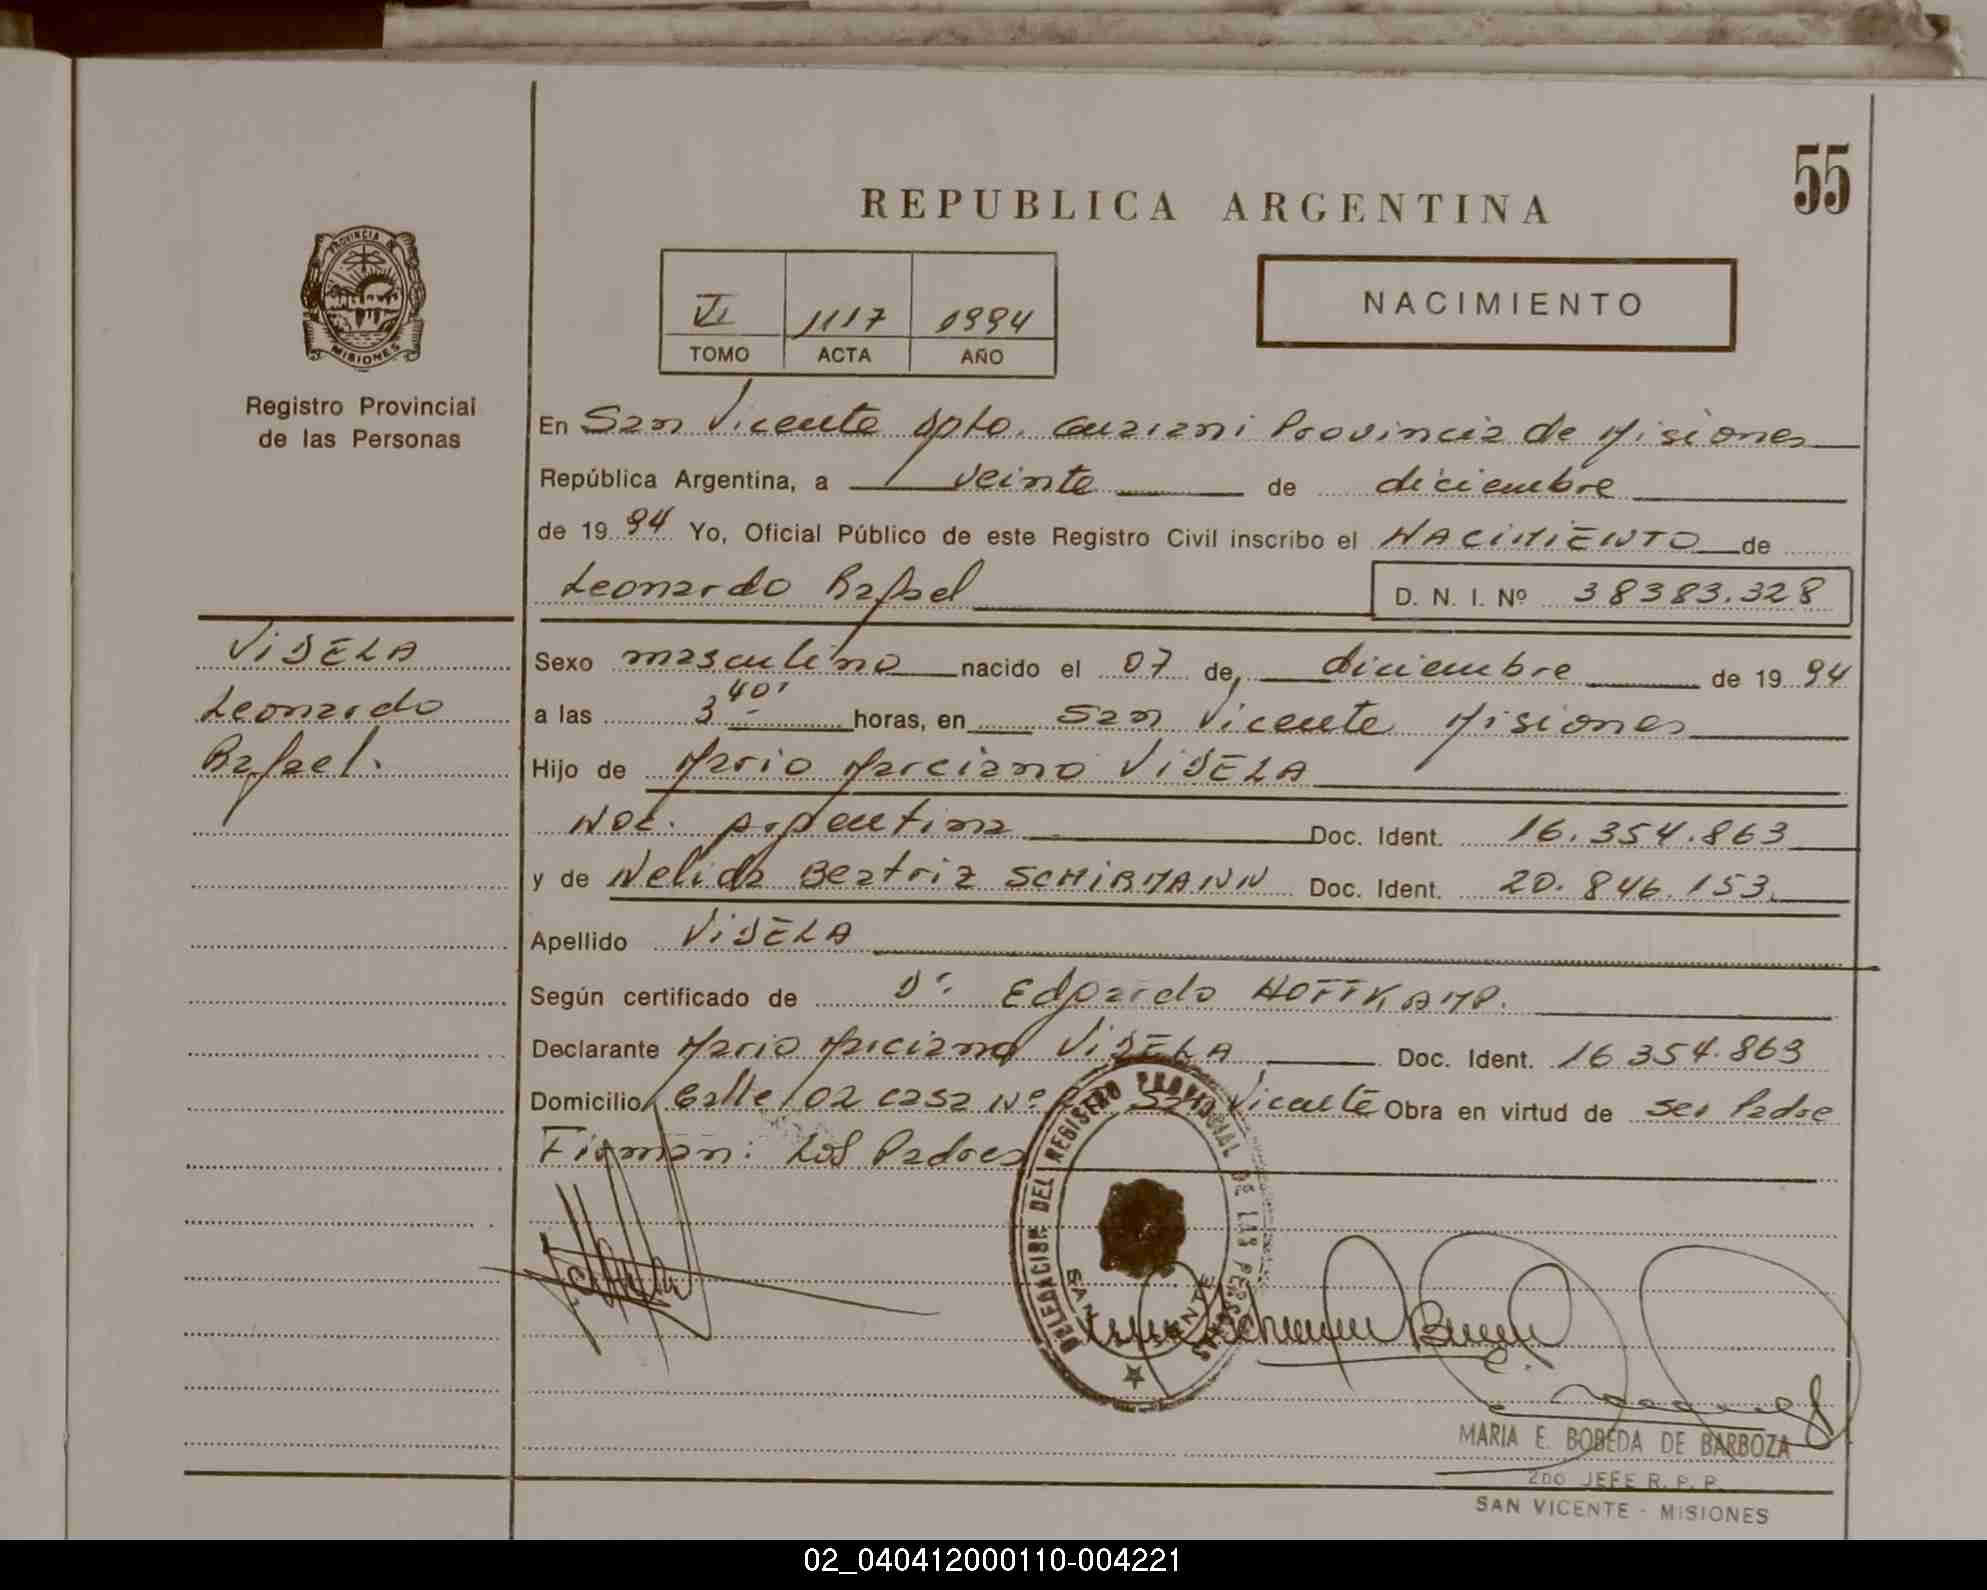 55
REPUBLICA ARGENTINA
PROVINCIA DE MISIONES
VI 1117 1994
TOMO ACTA AÑO
NACIMIENTO
Registro Provincial
de las Personas
En San Vicente Dpto. Guarani Provincia de Misiones
República Argentina, a veinte de diciembre
de 19 94 Yo, Oficial Público de este Registro Civil inscribo el NACIMIENTO de
Leonardo Rafael D. N. I. Nº 38383.328
VIDELA
Leonardo
Rafael.
Sexo masculino nacido el 07 de diciembre de 19 94
a las 3 40' horas, en San Vicente Misiones
Hijo de Mario Marciano VIDELA
Nac. Argentina Doc. Ident. 16.354.863
y de Nelida Beatriz SCHIRMANN Doc. Ident. 20.846.153.
Apellido VIDELA
Según certificado de Dr. Edgardo HOFFKAMP.
Declarante Mario Marciano VIDELA Doc. Ident. 16 354.863
Domicilio Calle 102 casa Nº San Vicente Obra en virtud de ser Padre
Firman: Los Padres
DELEGACION DEL REGISTRO PROVINCIAL DE LAS PERSONAS
SAN VICENTE
MARIA E. BOBEDA DE BARBOZA
2DO JEFE R. P. P.
SAN VICENTE - MISIONES
02_040412000110-004221